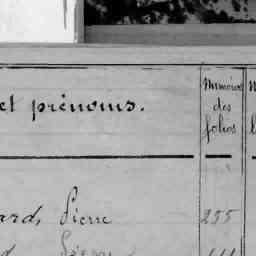 et prénoms.
Numéros
des
folios
ard, Pierre 255